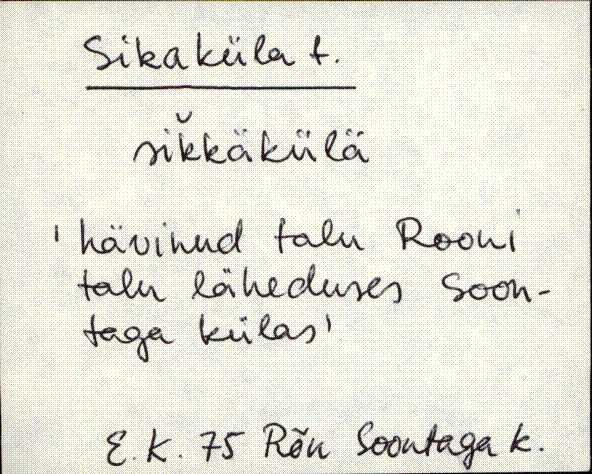 Sikaküla t.
sik̆käkülä
'hävinud talu Rooni
talu läheduses Soon-
taga külas'
E. K. 75 Rõn Soontaga k.